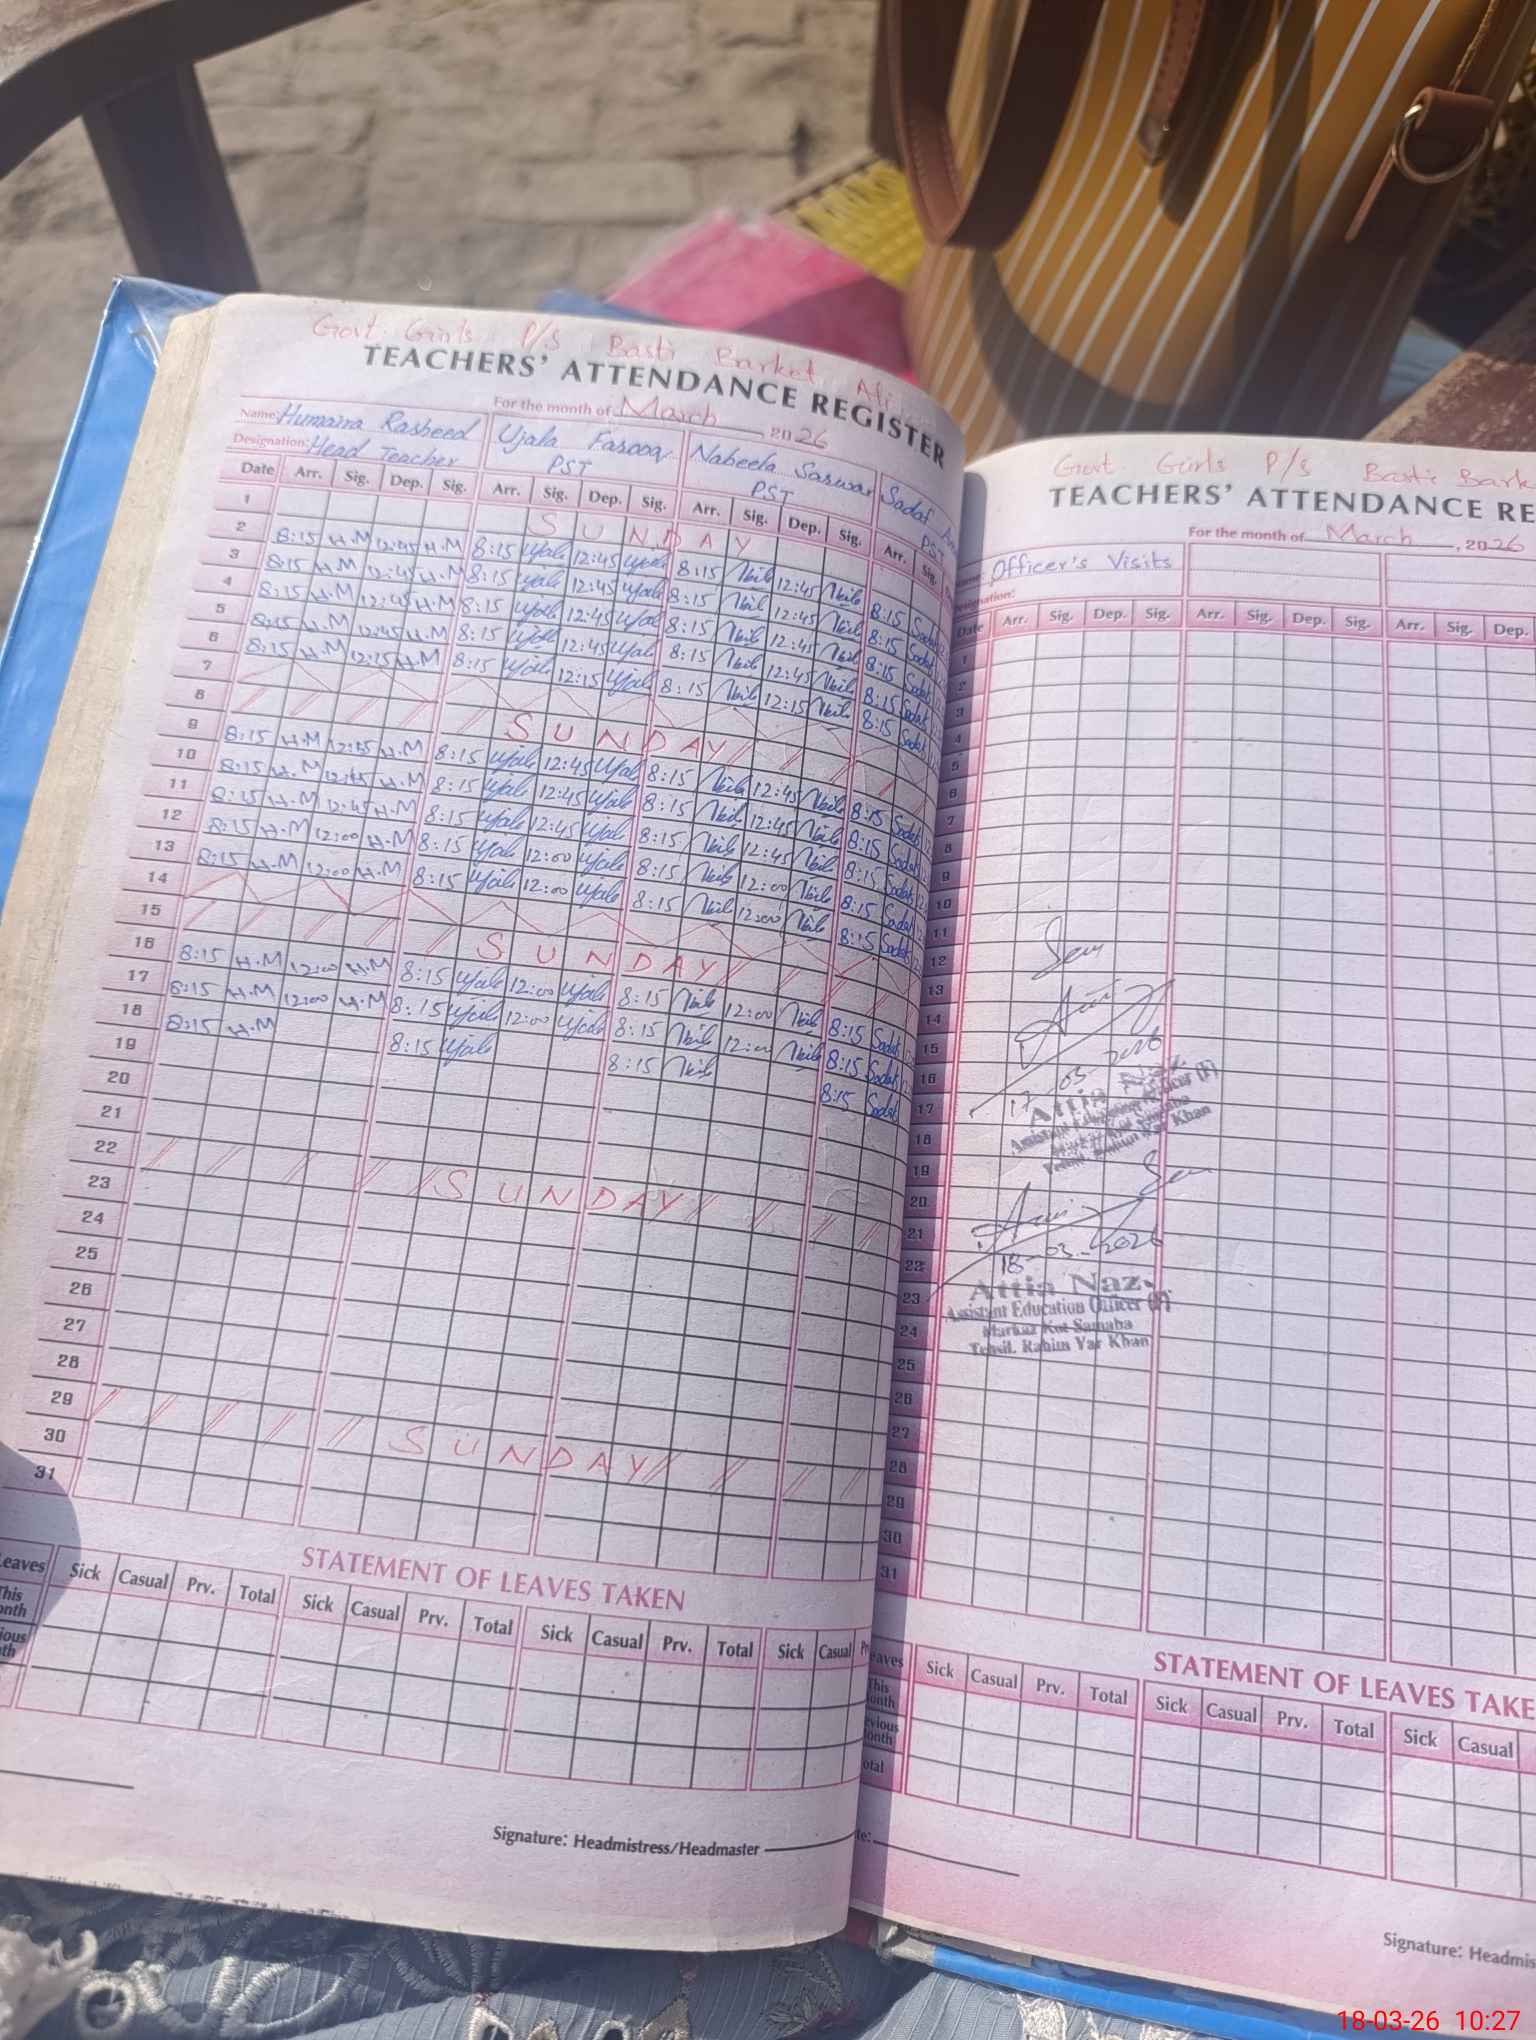 Govt. Girls P/S Basti Barket Ali
TEACHERS' ATTENDANCE REGISTER
For the month of March 2026
Name: Humaira Rasheed Ujala Farooq Nabeela Sarwar Sadaf
Designation: Head Teacher PST PST PST
Date Arr. Sig. Dep. Sig. Arr. Sig. Dep. Sig. Arr. Sig. Dep. Sig. Arr. Sig.
1 SUNDAY
2 8:15 H.M 12:45 H.M 8:15 Ujala 12:45 Ujala 8:15 12:45 8:15 Sadaf
3 8:15 H.M 12:45 H.M 8:15 Ujala 12:45 Ujala 8:15 12:45 8:15 Sadaf
4 8:15 H.M 12:45 H.M 8:15 Ujala 12:45 Ujala 8:15 12:45 8:15 Sadaf
5 8:15 H.M 12:45 H.M 8:15 Ujala 12:45 Ujala 8:15 12:45 8:15 Sadaf
6 8:15 H.M 12:15 H.M 8:15 Ujala 12:15 Ujala 8:15 12:15 8:15 Sadaf
7
8 SUNDAY
9 8:15 H.M 12:45 H.M 8:15 Ujala 12:45 Ujala 8:15 12:45 8:15 Sadaf
10 8:15 H.M 12:45 H.M 8:15 Ujala 12:45 Ujala 8:15 12:45 8:15 Sadaf
11 8:15 H.M 12:45 H.M 8:15 Ujala 12:45 Ujala 8:15 12:45 8:15 Sadaf
12 8:15 H.M 12:00 H.M 8:15 Ujala 12:00 Ujala 8:15 12:00 8:15 Sadaf
13 8:15 H.M 12:00 H.M 8:15 Ujala 12:00 Ujala 8:15 12:00 8:15 Sadaf
14
15 SUNDAY
16 8:15 H.M 12:00 H.M 8:15 Ujala 12:00 Ujala 8:15 12:00 8:15 Sadaf
17 8:15 H.M 12:00 H.M 8:15 Ujala 12:00 Ujala 8:15 12:00 8:15 Sadaf
18 8:15 H.M 8:15 Ujala 8:15 8:15 Sadaf
19
20
21
22 SUNDAY
23
24
25
26
27
28
29 SUNDAY
30
31
STATEMENT OF LEAVES TAKEN
Leaves Sick Casual Prv. Total Sick Casual Prv. Total Sick Casual Prv. Total Sick Casual
This
Signature: Headmistress/Headmaster
Govt. Girls P/S Basti Bark
TEACHERS' ATTENDANCE RE
For the month of March, 2026
Officer's Visits
Date Arr. Sig. Dep. Sig. Arr. Sig. Dep. Sig. Arr. Sig. Dep.
1
2
3
4
5
6
7
8
9
10
11
12
13
14
15
16
17
18
19
20
21
22
23
24
25
26
27
28
29
30
31
17-03-2026
Attia Naz
Assistant Education Officer (F)
18-03-2026
Attia Naz
Assistant Education Officer (F)
Markaz Kot Samaba
Tehsil. Rahim Yar Khan
STATEMENT OF LEAVES TAKE
Sick Casual Prv. Total Sick Casual Prv. Total Sick Casual
Signature: Headmis
18-03-26 10:27